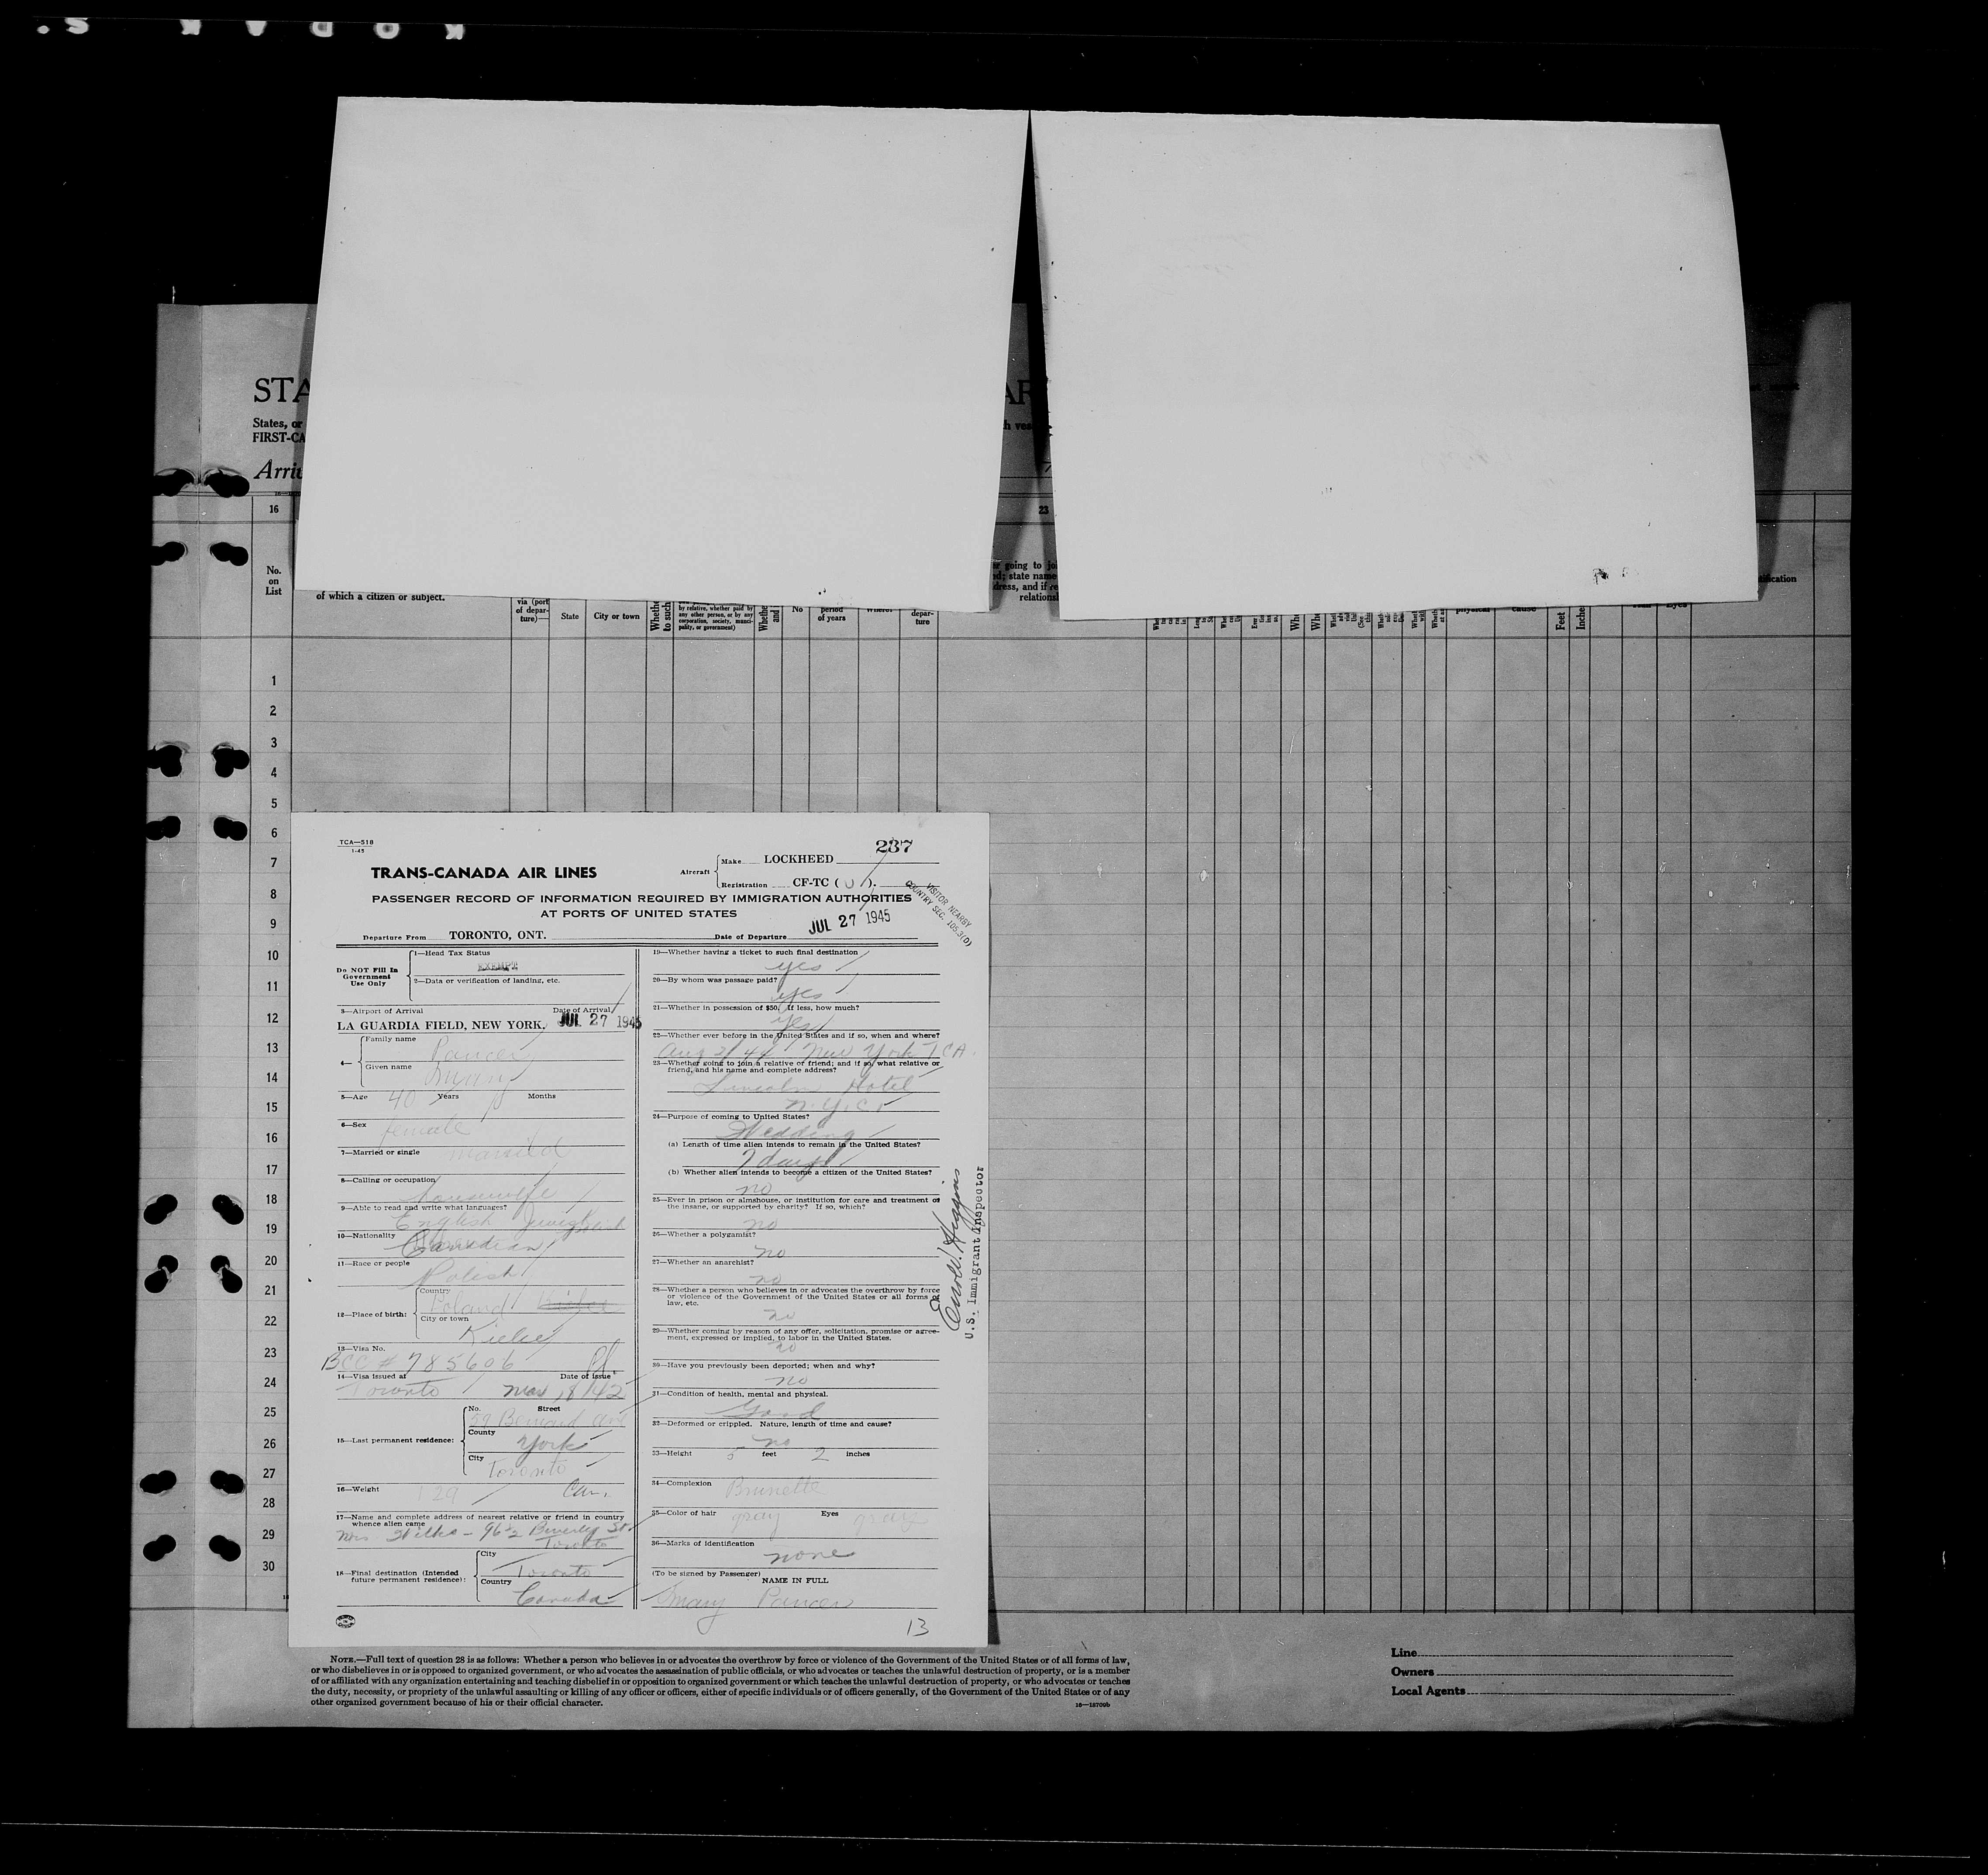 KODAK S.
STA
States, or
FIRST-CA
Arriv
16
23
No.
on
List
of which a citizen or subject.
via (port
of depar-
ture)—
State
City or town
Whethe
to such
by relative, whether paid by
any other person, or by any
corporation, society, munci-
pality, or government)
Whethe
and i
No
period
of years
Where?
depar-
ture
er going to jo
state name
dress, and if re
relations
physical
cause
Feet
Inche
Eyes
tification
1
2
3
4
5
6
7
8
9
10
11
12
13
14
15
16
17
18
19
20
21
22
23
24
25
26
27
28
29
30
TCA—518
1-45
237
TRANS-CANADA AIR LINES
Aircraft
Make LOCKHEED
Registration CF-TC ( ).
PASSENGER RECORD OF INFORMATION REQUIRED BY IMMIGRATION AUTHORITIES
AT PORTS OF UNITED STATES
VISITOR NEARBY
COUNTRY SEC. 105.3(D)
JUL 27 1945
Departure From TORONTO, ONT.
Date of Departure
Do NOT Fill In
Government
Use Only
1—Head Tax Status
EXEMPT
2—Data or verification of landing, etc.
3—Airport of Arrival
Date of Arrival
LA GUARDIA FIELD, NEW YORK. JUL 27 1945
4—
Family name
Pancer
Given name
5—Age 40 Years Months
6—Sex female
7—Married or single married
8—Calling or occupation
housewife
9—Able to read and write what languages?
English Jewish
10—Nationality
Canadian
11—Race or people
Polish
12—Place of birth:
Country
Poland Kielce
City or town
Kielce
13—Visa No.
BCC # 785606
14—Visa issued at
Date of issue
Toronto Mar 18/42
15—Last permanent residence:
No. Street
Bernard Ave
County
York
City
Toronto
16—Weight 129 Can.
17—Name and complete address of nearest relative or friend in country
whence alien came
Mrs Wilks - 96½ Beverley St.
Toronto
18—Final destination (Intended
future permanent residence):
City
Toronto
Country
Canada
19—Whether having a ticket to such final destination
yes
20—By whom was passage paid?
yes
21—Whether in possession of $50. If less, how much?
yes
22—Whether ever before in the United States and if so, when and where?
Aug 44 New York TCA.
23—Whether going to join a relative or friend; and if so, what relative or
friend, and his name and complete address?
Lincoln Hotel
N.Y.C.
24—Purpose of coming to United States?
Wedding
(a) Length of time alien intends to remain in the United States?
7 days
(b) Whether alien intends to become a citizen of the United States?
no
25—Ever in prison or almshouse, or institution for care and treatment of
the insane, or supported by charity? If so, which?
no
26—Whether a polygamist?
no
27—Whether an anarchist?
no
28—Whether a person who believes in or advocates the overthrow by force
or violence of the Government of the United States or all forms of
law, etc.
no
29—Whether coming by reason of any offer, solicitation, promise or agree-
ment, expressed or implied, to labor in the United States.
no
30—Have you previously been deported; when and why?
no
31—Condition of health, mental and physical.
Good
32—Deformed or crippled. Nature, length of time and cause?
no
33—Height 5 feet 2 inches
34—Complexion Brunette
35—Color of hair gray Eyes gray
36—Marks of identification
none
(To be signed by Passenger)
NAME IN FULL
Mary Pancer
13
Higgins
U.S. Immigrant Inspector
NOTE.—Full text of question 28 is as follows: Whether a person who believes in or advocates the overthrow by force or violence of the Government of the United States or of all forms of law,
or who disbelieves in or is opposed to organized government, or who advocates the assassination of public officials, or who advocates or teaches the unlawful destruction of property, or is a member
of or affiliated with any organization entertaining and teaching disbelief in or opposition to organized government or which teaches the unlawful destruction of property, or who advocates or teaches
the duty, necessity, or propriety of the unlawful assaulting or killing of any officer or officers, either of specific individuals or of officers generally, of the Government of the United States or of any
other organized government because of his or their official character.
16—18709b
Line
Owners
Local Agents